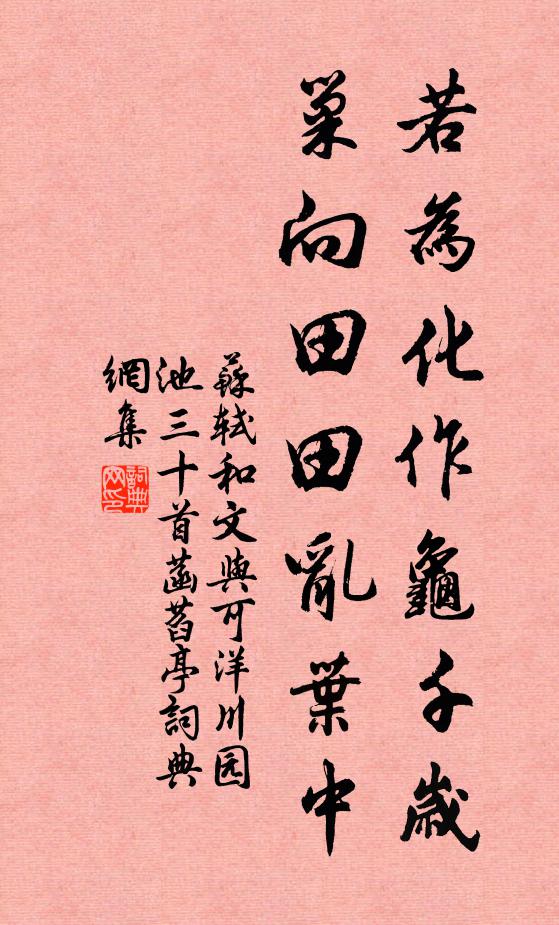 若為化作龜千歲
巢向田田亂葉中
蘇軾和文與可洋川园
池三十首菡萏亭詞典
網集
詞典
网印